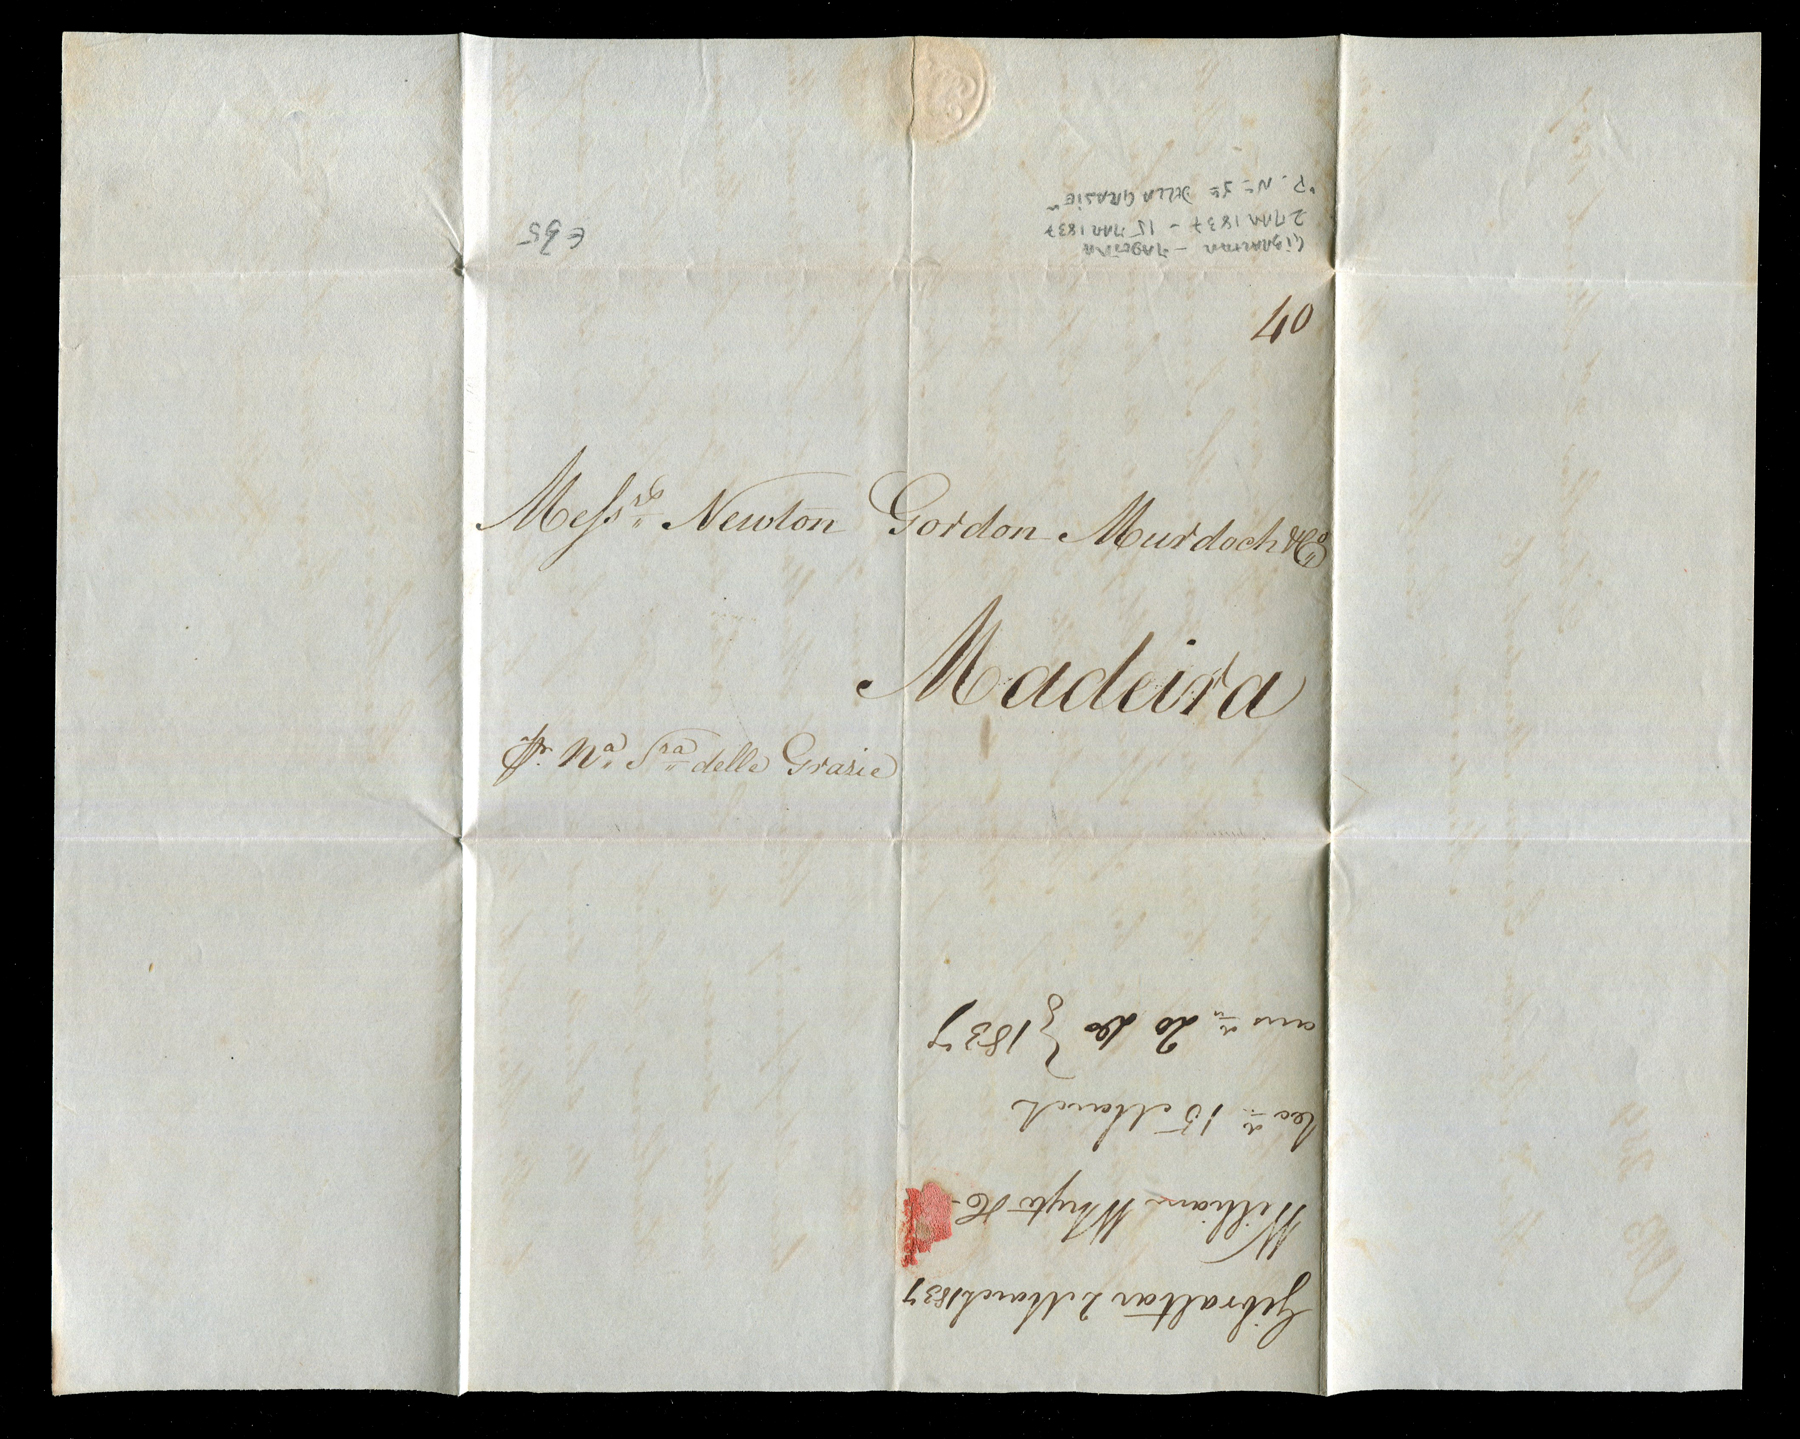 40
Messrs. Newton Gordon Murdoch & Co
Madeira
Pr. Na. Sra delle Grazie
Gibraltar 2 March 1837
William Whyte & Co
recd 15 March
ansd 20 do } 1837
GIBRALTAR - MADEIRA
2 MAR 1837 - 15 MAR 1837
"P. Na Sra DELLA GRASIE"
€35